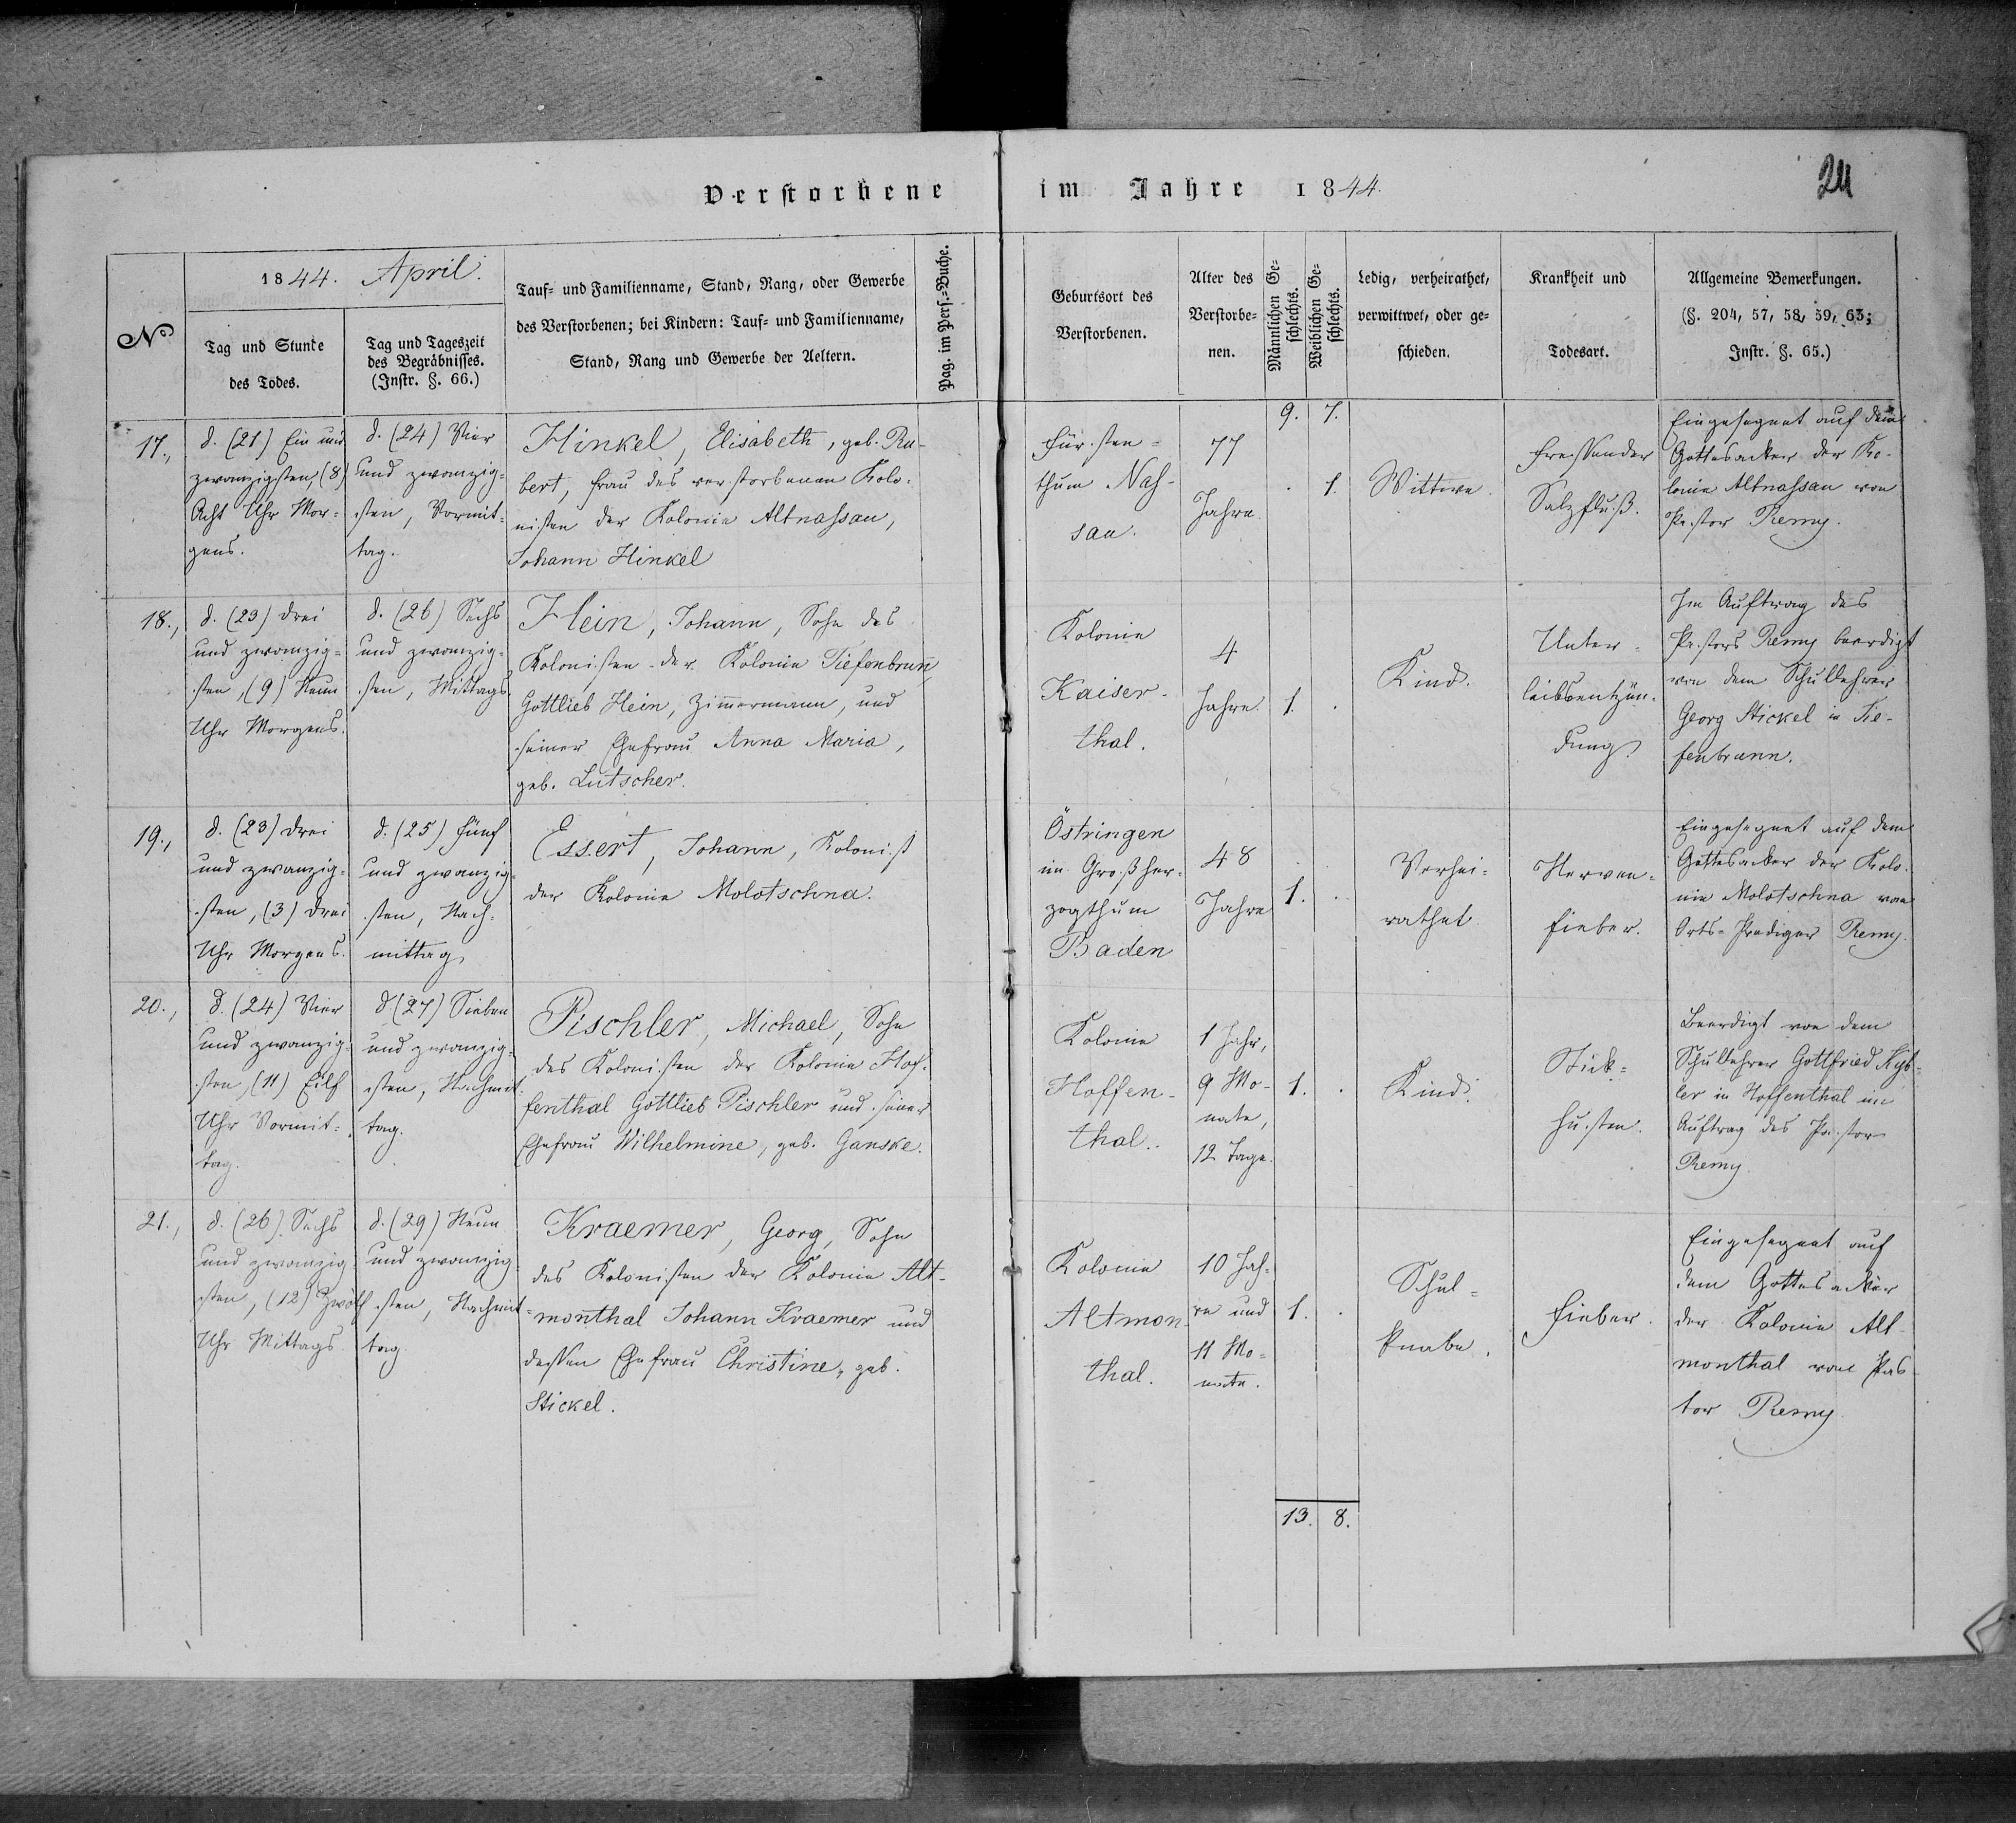 Verstorbene im Jahre 1844.
24
No
1844. April.
Tag und Stunde
des Todes.
Tag und Tageszeit
des Begräbnisses.
(Instr. §. 66.)
Tauf- und Familienname, Stand, Rang, oder Gewerbe
des Verstorbenen; bei Kindern: Tauf- und Familienname,
Stand, Rang und Gewerbe der Aeltern.
Pag. im Pers.-Buche.
Geburtsort des
Verstorbenen.
Alter des
Verstorbe-
nen.
Männlichen Ge-
schlechts.
Weiblichen Ge-
schlechts.
Ledig, verheirathet,
verwittwet, oder ge-
schieden.
Krankheit und
Todesart.
Allgemeine Bemerkungen.
(§. 204, 57, 58, 59, 63;
Instr. §. 65.)
9. 7.
17.,
d. (21) Ein und
zwanzigsten, (8)
Acht Uhr Mor-
gens.
d. (24) Vier
und zwanzig-
sten, Vormit-
tag.
Hinkel, Elisabeth, geb. Ru-
bert, Frau des verstorbenen Kolo-
nisten der Kolonie Altnassau,
Johann Hinkel
Fürsten-
thum Nas-
sau.
77
Jahre.
. 1.
Wittwe.
Fressender
Salzfluß.
Eingesegnet auf dem
Gottesacker der Ko-
lonie Altnassau von
Pastor Remy.
18.,
d. (23) Drei
und zwanzig-
sten, (9) Neun
Uhr Morgens.
d. (26) Sechs
und zwanzig-
sten, Mittags.
Hein, Johann, Sohn des
Kolonisten der Kolonie Tiefenbrun̄
Gottlieb Hein, Zim̄ermann, und
seiner Ehefrau Anna Maria,
geb. Lutscher.
Kolonie
Kaiser-
thal.
4
Jahre.
1. .
Kind.
Unter-
leibsentzün-
dung.
Im Auftrag des
Pastors Remy beerdigt
von dem Schullehrer
Georg Stickel in Tie-
fenbrunn.
19.,
d. (23) Drei
und zwanzig-
sten, (3) Drei
Uhr Morgens.
d. (25) Fünf
und zwanzig-
sten, Nach-
mittag.
Essert, Johann, Kolonist
der Kolonie Molotschna.
Östringen
im Großher-
zogthum
Baden
48
Jahre
1. .
Verhei-
rathet
Nerven-
fieber.
Eingesegnet auf dem
Gottesacker der Kolo-
nie Molotschna von
Orts-Prediger Remy.
20.,
d. (24) Vier
und zwanzig-
sten, (11) Eilf
Uhr Vormit-
tag.
d. (27) Sieben
und zwanzig-
sten, Nachmit-
tag.
Pischler, Michael, Sohn
des Kolonisten der Kolonie Hof-
fenthal Gottlieb Pischler und seiner
Ehefrau Wilhelmine, geb. Ganske.
Kolonie
Hoffen-
thal.
1 Jahr,
9 Mo-
nate,
12 Tage.
1. .
Kind.
Stick-
husten.
Beerdigt von dem
Schullehrer Gottfried
in Hoffenthal im
Auftrag des Pastor
Remy.
21.,
d. (26) Sechs
und zwanzig-
sten, (12) Zwölf
Uhr Mittags.
d. (29) Neun
und zwanzig-
sten, Nachmit-
tag.
Kraemer, Georg, Sohn
des Kolonisten der Kolonie Alt-
monthal Johann Kraemer und
dessen Ehefrau Christine, geb.
Stickel.
Kolonie
Altmon-
thal.
10 Jah-
re und
11 Mo-
nate.
1. .
Schul-
knabe.
Fieber.
Eingesegnet auf
dem Gottesacker
der Kolonie Alt-
monthal von Pas-
tor Remy
13. 8.